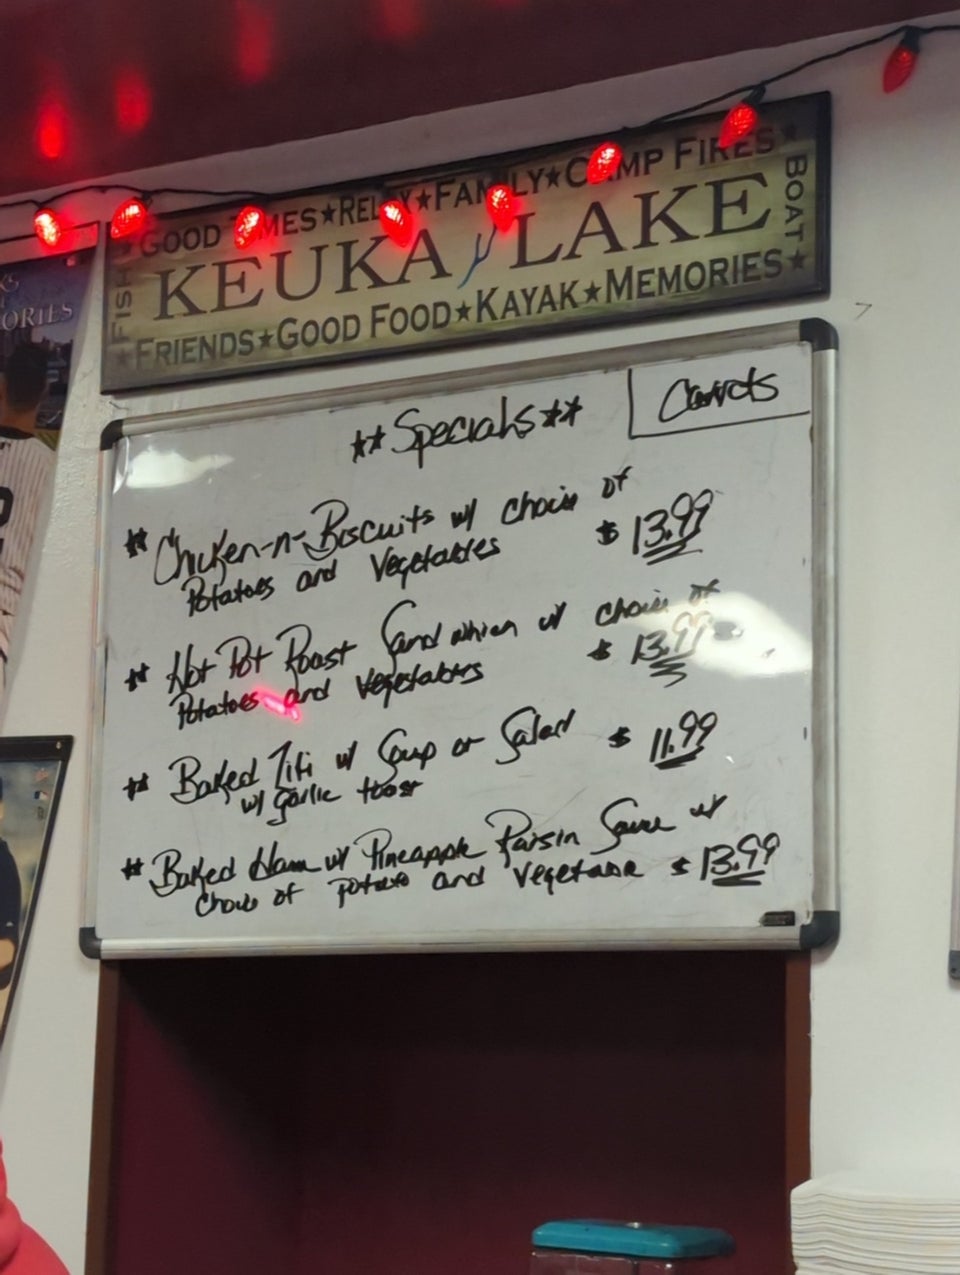 GOOD TIMES★RELAX★FAMILY★CAMP FIRES★
FISH
KEUKA LAKE
BOAT
★FRIENDS★GOOD FOOD★KAYAK★MEMORIES★
ORIES
**Specials**
Carrots
** Chicken-n-Biscuits w/ choice of
Potatoes and Vegetables $ 13.99
** Hot Pot Roast Sandwhich w/ choice of
Potatoes and Vegetables $ 13.99
** Baked Ziti w/ Soup or Salad $ 11.99
w/ garlic toast
** Baked Ham w/ Pineapple Raisin Sauce w/
choice of potato and vegetable $ 13.99